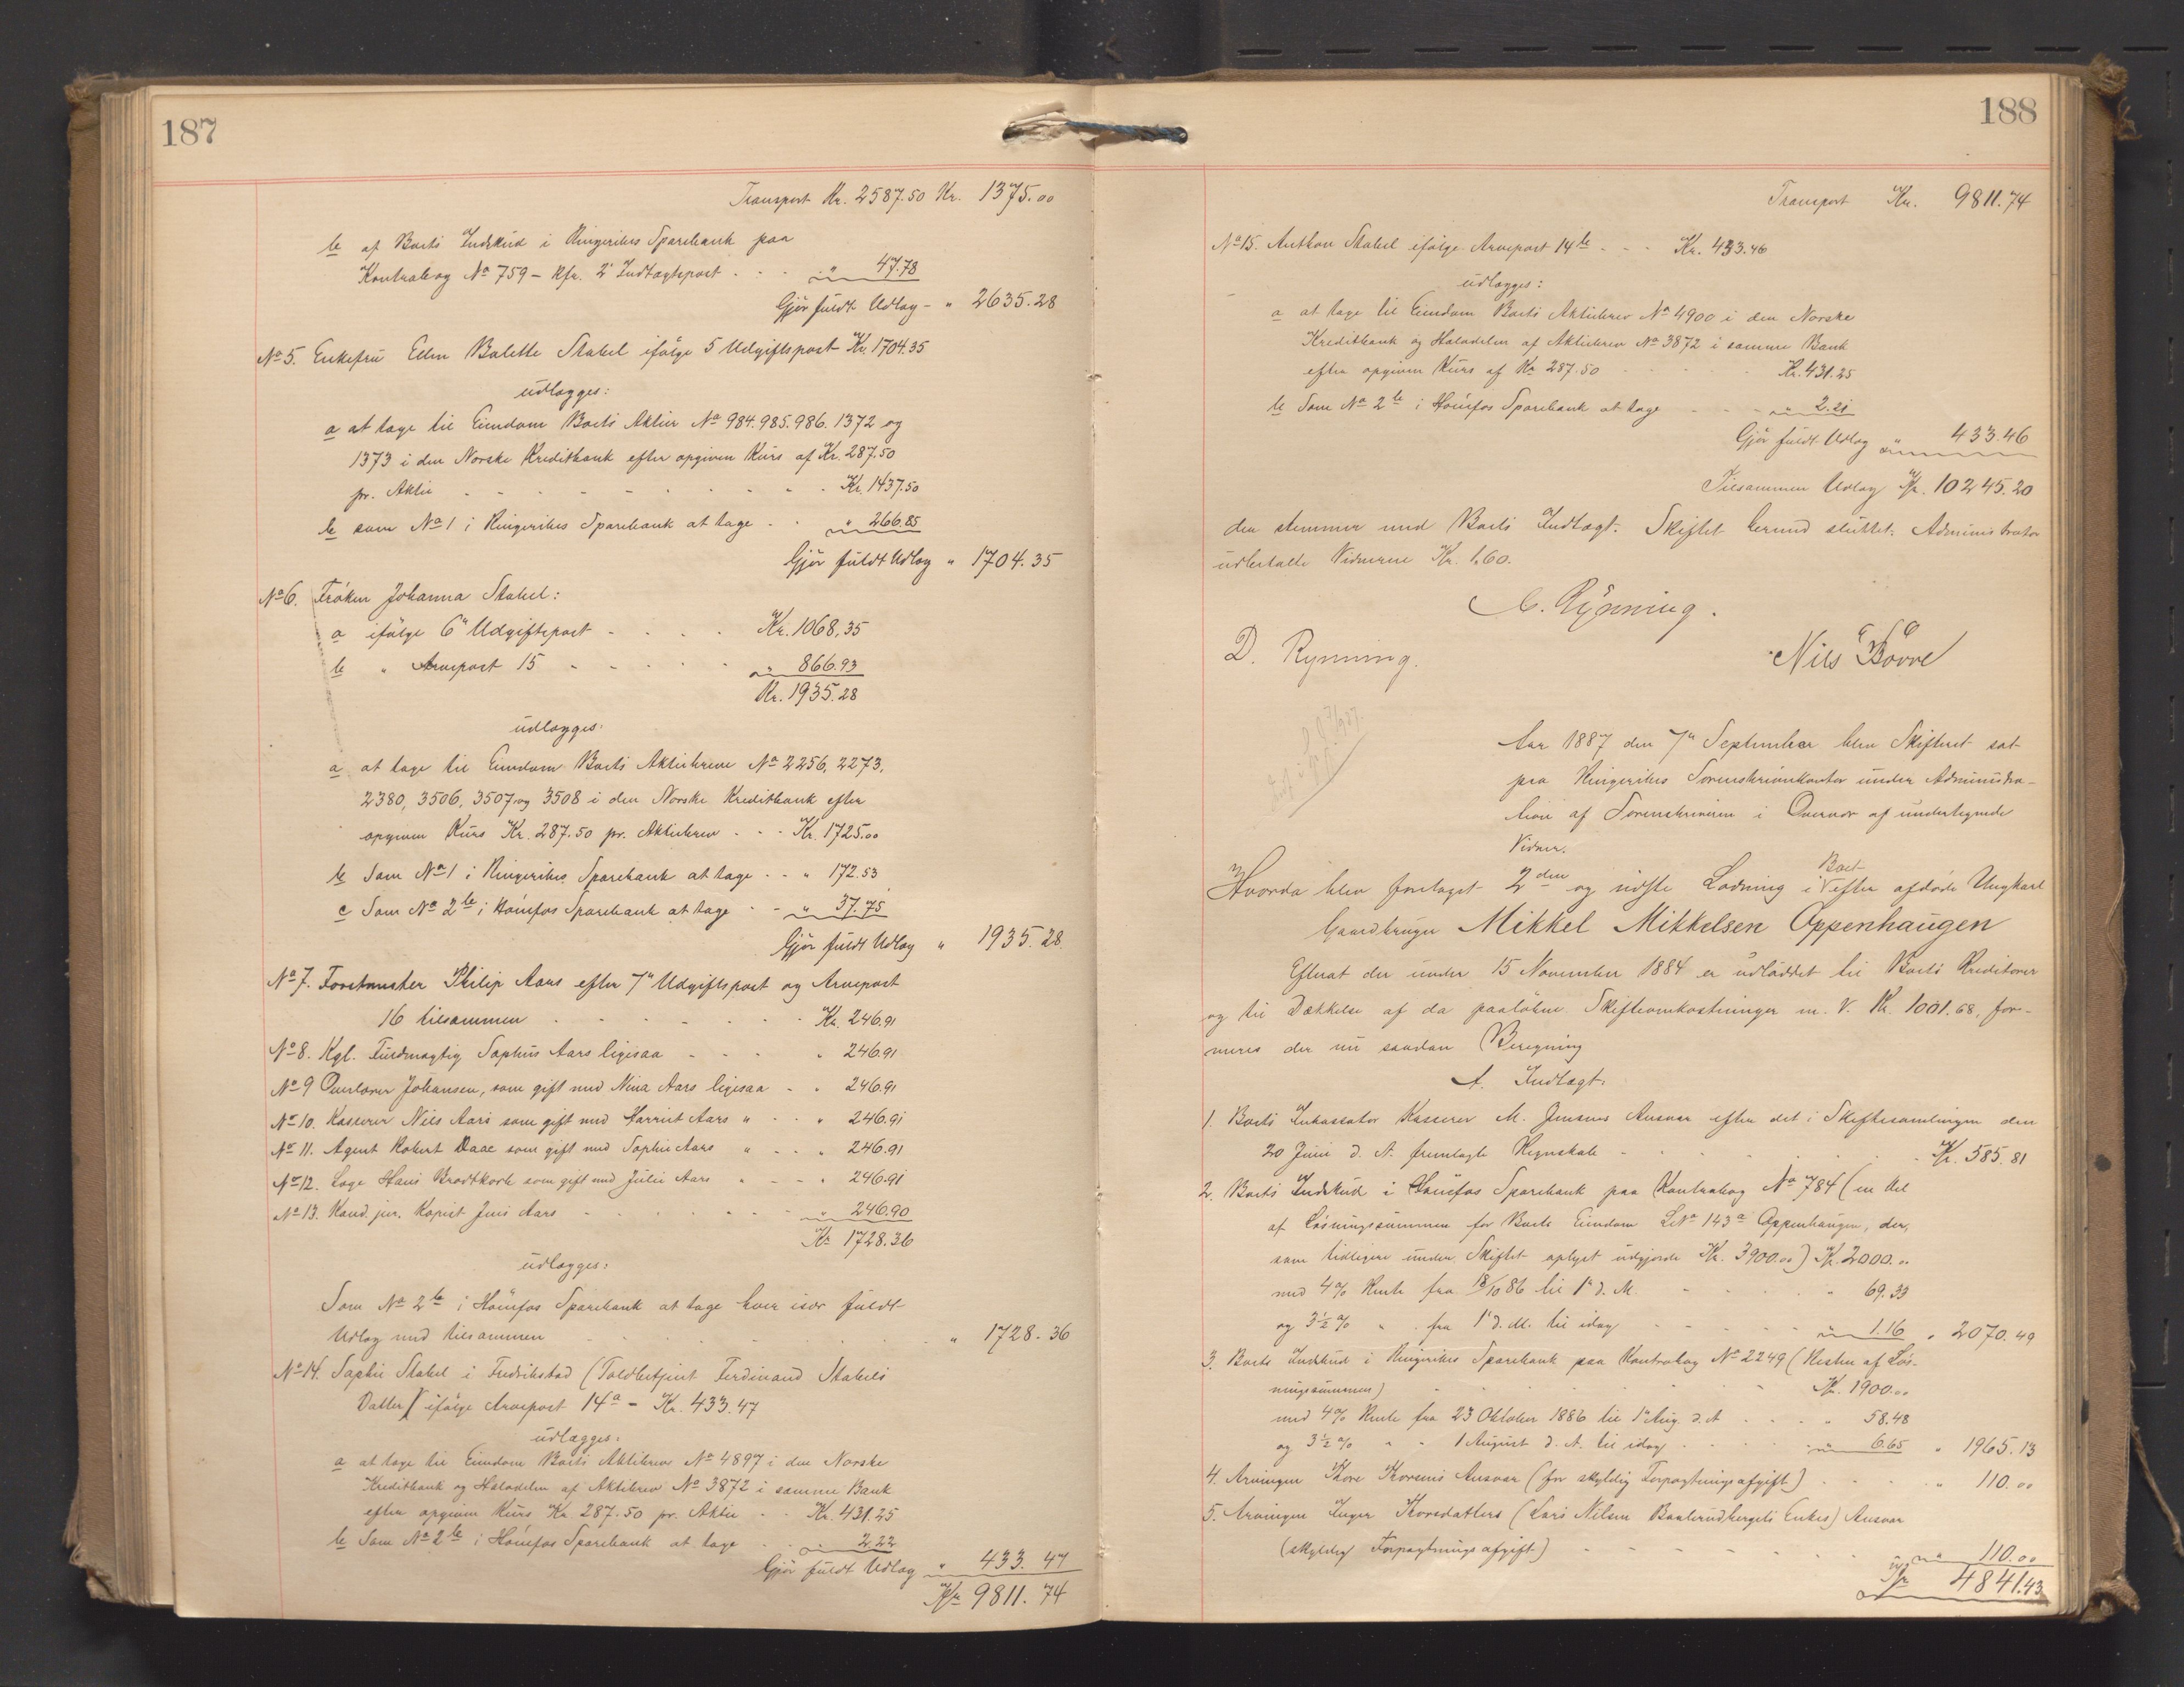 187
Transport Kr. 2587.50 Kr. 1375.00
b af Boets Indskud i Ringerikes Sparebank paa
Kontrabog No 759 - Kfr. 2' Indtægtspost . . . " 47.78
Gjør fuldt Udlæg - " 2635.28
No 5. Enkefru Ellen Bolette Stabel ifølge 5 Udgiftspost Kr. 1704.35
udlægges:
a at tage til Eiendom Boets Aktier No 984. 985. 986. 1372 og
1373 i den Norske Kreditbank efter opgiven Kurs af Kr. 287.50
pr. Aktie - - - - Kr. 1437.50
b som No 1 i Ringerikes Sparebank at tage - - " 266.85
Gjør fuldt Udlæg " 1704.35
No 6. Frøken Johanna Stabel:
a ifølge 6" Udgiftspost - - - - Kr. 1068.35
b " Arvepost 15 - - - - " 866.93
Kr. 1935.28
udlægges:
a at tage til Eiendom Boets Aktiebreve No 2256, 2273,
2380, 3506, 3507 og 3508 i den Norske Kreditbank efter
opgiven Kurs Kr. 287.50 pr. Aktiebrev - - - Kr. 1725.00
b Som No 1 i Ringerikes Sparebank at tage - - " 172.53
c Som No 2 b i Hønefos Sparebank at tage - - " 37.75
Gjør fuldt Udlæg " 1935.28
No 7. Forstmester Philip Aars efter 7" Udgiftspost og Arvepost
16 tilsammen - - - - Kr. 246.91
No 8. Kgl. Fuldmægtig Sophus Aars ligesaa - - - " 246.91
No 9 Overlærer Johansen, som gift med Nina Aars ligesaa - " 246.91
No 10. Kasserer Niels Aars som gift med Harriet Aars " - - " 246.91
No 11. Agent Robert Daae som gift med Sophie Aars " - - " 246.91
No 12. Læge Hans Brodtkorb som gift med Julie Aars " - - " 246.91
No 13. Kand. jur. Kopist Jens Aars - - - - " 246.90
Kr 1728.36
udlægges:
Som No 2 b i Hønefos Sparebank at tage hver især fuldt
Udlæg med tilsammen - - - - " 1728.36
No 14. Sophie Stabel i Fredrikstad (Toldbetjent Ferdinand Stabels
Datter) ifølge Arvepost 14 a - Kr. 433.47
udlægges:
a at tage til Eiendom Boets Aktiebrev No 4897 i den Norske
Kreditbank og Halvdelen af Aktiebrev No 3872 i samme Bank
efter opgiven Kurs Kr. 287.50 pr. Aktie - - Kr. 431.25
b Som No 2 b i Hønefos Sparebank at tage - - 2.22
Gjør fuldt Udlæg " 433.47
Kr 9811.74
188
Transport Kr. 9811.74
No 15. Anthon Stabel ifølge Arvepost 14 b - - - Kr. 433.46
udlægges:
a at tage til Eiendom Boets Aktiebrev No 4900 i den Norske
Kreditbank og Halvdelen af Aktiebrev No 3872 i samme Bank
efter opgiven Kurs af Kr 287.50 - - - Kr. 431.25
b Som No 2 b i Hønefos Sparebank at tage - - - " 2.21
Gjør fuldt Udlæg " 433.46
Tilsammen Udlæg Kr. 10245.20
der stemmer med Boets Indtægt. Skiftet herved sluttet. Administrator
udbetalte Vidnerne Kr. 1.60.
C. Rynning.
D. Rynning.
Nils Børre
Aar 1887 den 7" September blev Skifteret sat
paa Ringerikes Sorenskriverkontor under Administra-
tion af Sorenskriveren i Overvær af undertegnede
Vidner.
Hvorda blev foretaget 2den og sidste Lodning i Boet efter afdøde Ungkarl
Gaardbruger Mikkel Mikkelsen Oppenhaugen
Efterat der under 15 November 1884 er udloddet til Boets Kreditorer
og til Dækkelse af da paaløbne Skifteomkostninger m. V. Kr. 1001.68, for-
meres der nu saadan Beregning
A. Indtægt.
1. Boets Inkassator Kasserer M. Jensens Ansvar efter det i Skiftesamlingen den
20 Juni d. A. fremlagte Regnskab - - - - Kr. 585.81
2. Boets Indskud i Hønefos Sparebank paa Kontrabog No 784 (en Del
af Løsningssummen for Boets Eiendom LNo 143 a Oppenhaugen, der,
som tidligere under Skiftet oplyst udgjorde Kr. 3900.00) Kr. 2000.00
med 4 % Rente fra 18/10 86 til 1" d. M. - - - " 69.33
og 3 1/2 % " fra 1" d. M. til idag - - - " 1.16 " 2070.49
3. Boets Indskud i Ringerikes Sparebank paa Kontrabog No 2249 (Resten af Løs-
ningssummen) - - - - Kr. 1900.00
med 4 % Rente fra 23 Oktober 1886 til 1" Aug. d. A - - - " 58.48
og 3 1/2 % " " 1 August d. A. til idag - - - " 6.65 " 1965.13
4. Arvingen Thore Thorsens Ansvar (for skyldig Forpagtningsafgift) - - - " 110.00
5. Arvingen Inger Thorsdatters (Lars Nilsen Enkes) Ansvar
(skyldig Forpagtningsafgift) - - - - " 110.00
Kr 4841.43